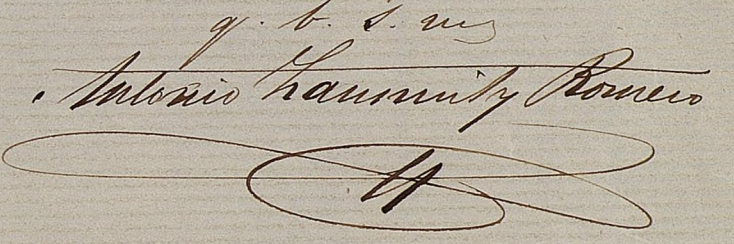 q. b. s. m.
Antonio Zammit y Romero